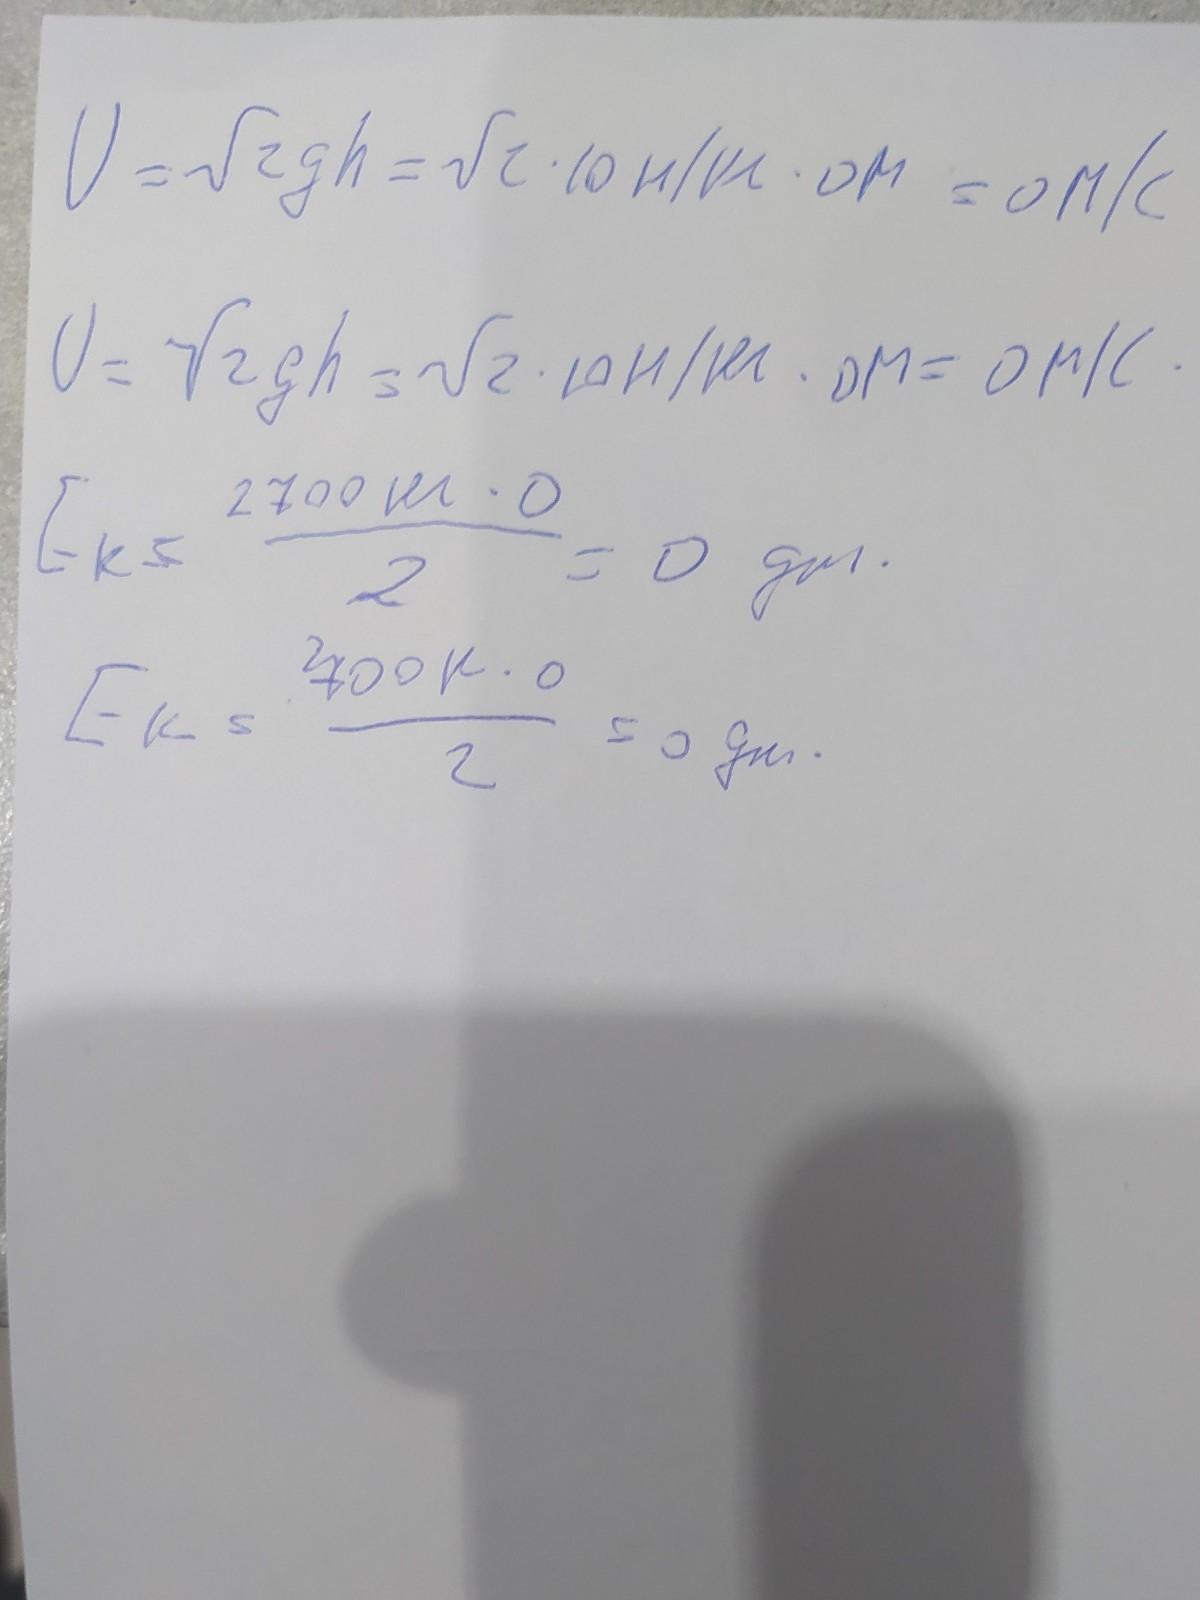 V = √2gh = √2 · 10 н/кг · 0м = 0 м/с
V = √2gh = √2 · 10 н/кг · 0м = 0 м/с.
Eк = 2700 кг · 0 / 2 = 0 дж.
Eк = 2700 к · 0 / 2 = 0 дж.